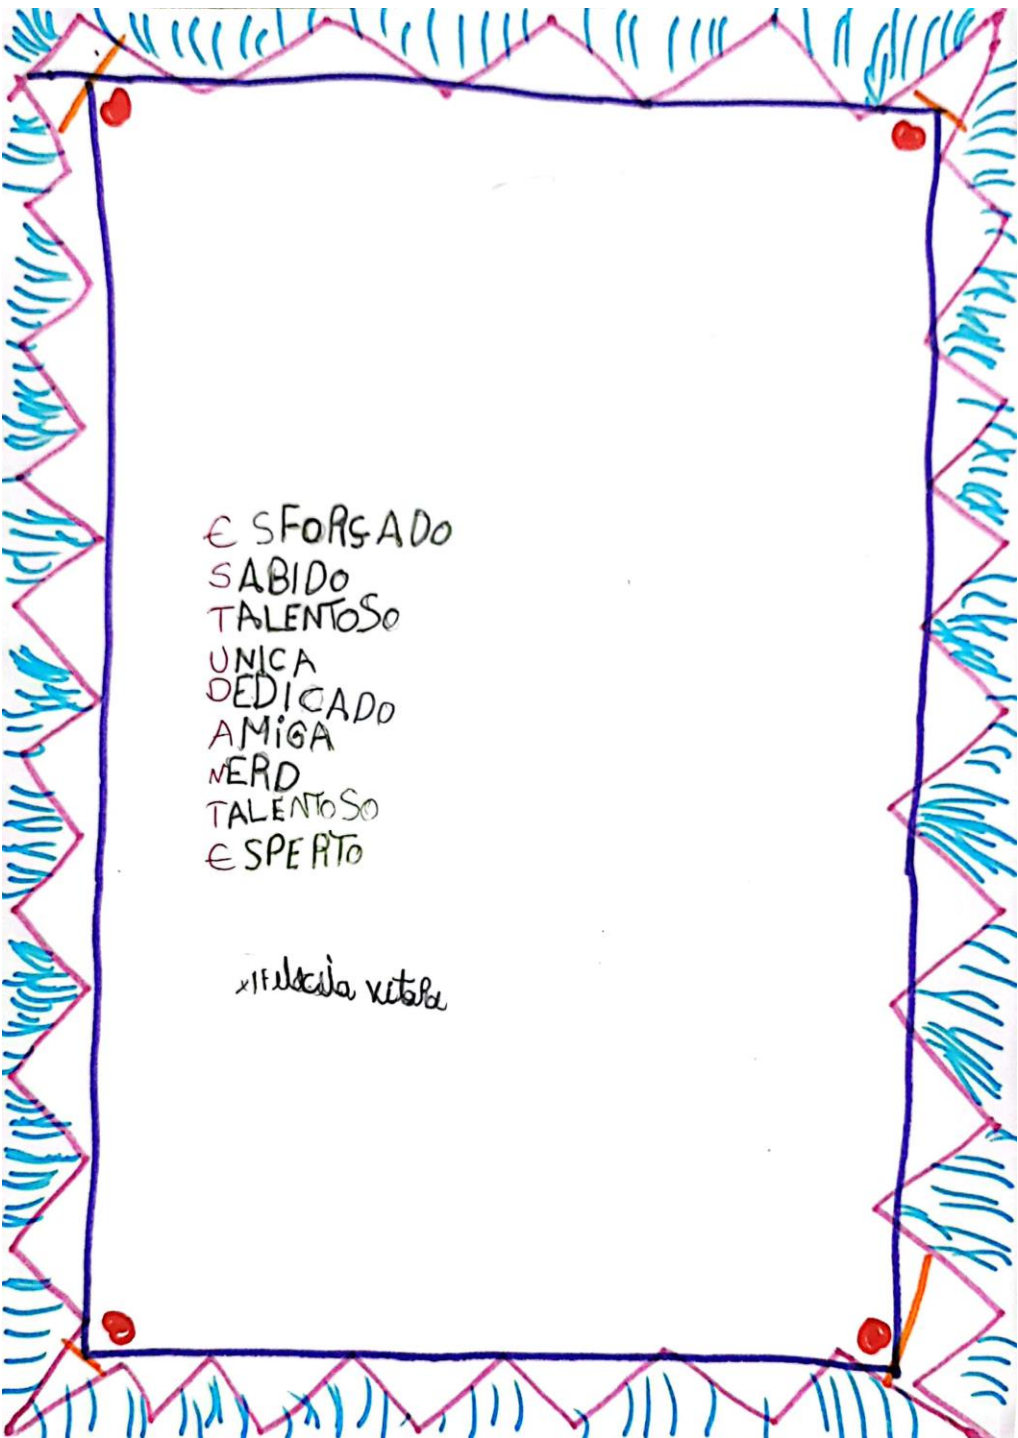 ESFORSADO
SABIDO
TALENTOSO
UNICA
DEDICADO
AMiGA
NERD
TALENTOSO
ESPERTO